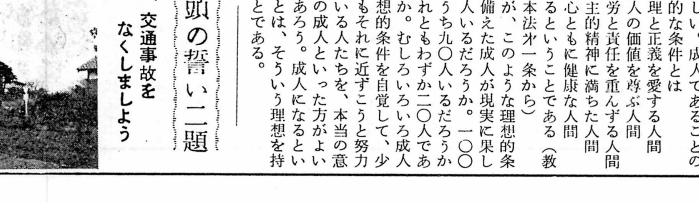 し、成人であることの
的な条件とは
理と正義を愛する人間
人の価値を尊ぶ人間
労と責任を重んずる人間
主的精神に満ちた人間
心ともに健康な人間
るということである（教
本法第一条から）
が、このような理想的条
備えた成人が現実に果し
人いるだろうか。一〇〇
うち九〇人いるだろうか
れともわずか二〇人であ
か。むしろいろいろ成人
想的条件を自覚して、少
もそれに近ずこうと努力
いる人たちを、本当の意
の成人といった方がよい
あろう。成人になるとい
とは、そういう理想を持
とである。
頭の誓い二題
交通事故を
なくしましよう